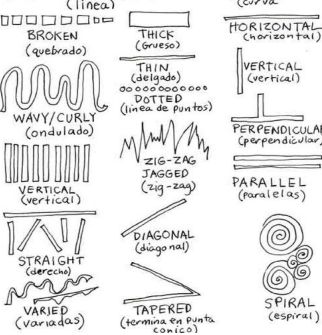 (línea)
BROKEN
(quebrado)
WAVY/CURLY
(ondulado)
VERTICAL
(vertical)
STRAIGHT
(derecho)
VARIED
(variadas)
THICK
(Grueso)
THIN
(delgado)
DOTTED
(línea de puntos)
ZIG-ZAG
JAGGED
(zig-zag)
DIAGONAL
(diagonal)
TAPERED
(termina en punta
cónico)
(curva
HORIZONTAL
(horizontal)
VERTICAL
(vertical)
PERPENDICULAR
(perpendicular,
PARALLEL
(paralelas)
SPIRAL
(espiral)